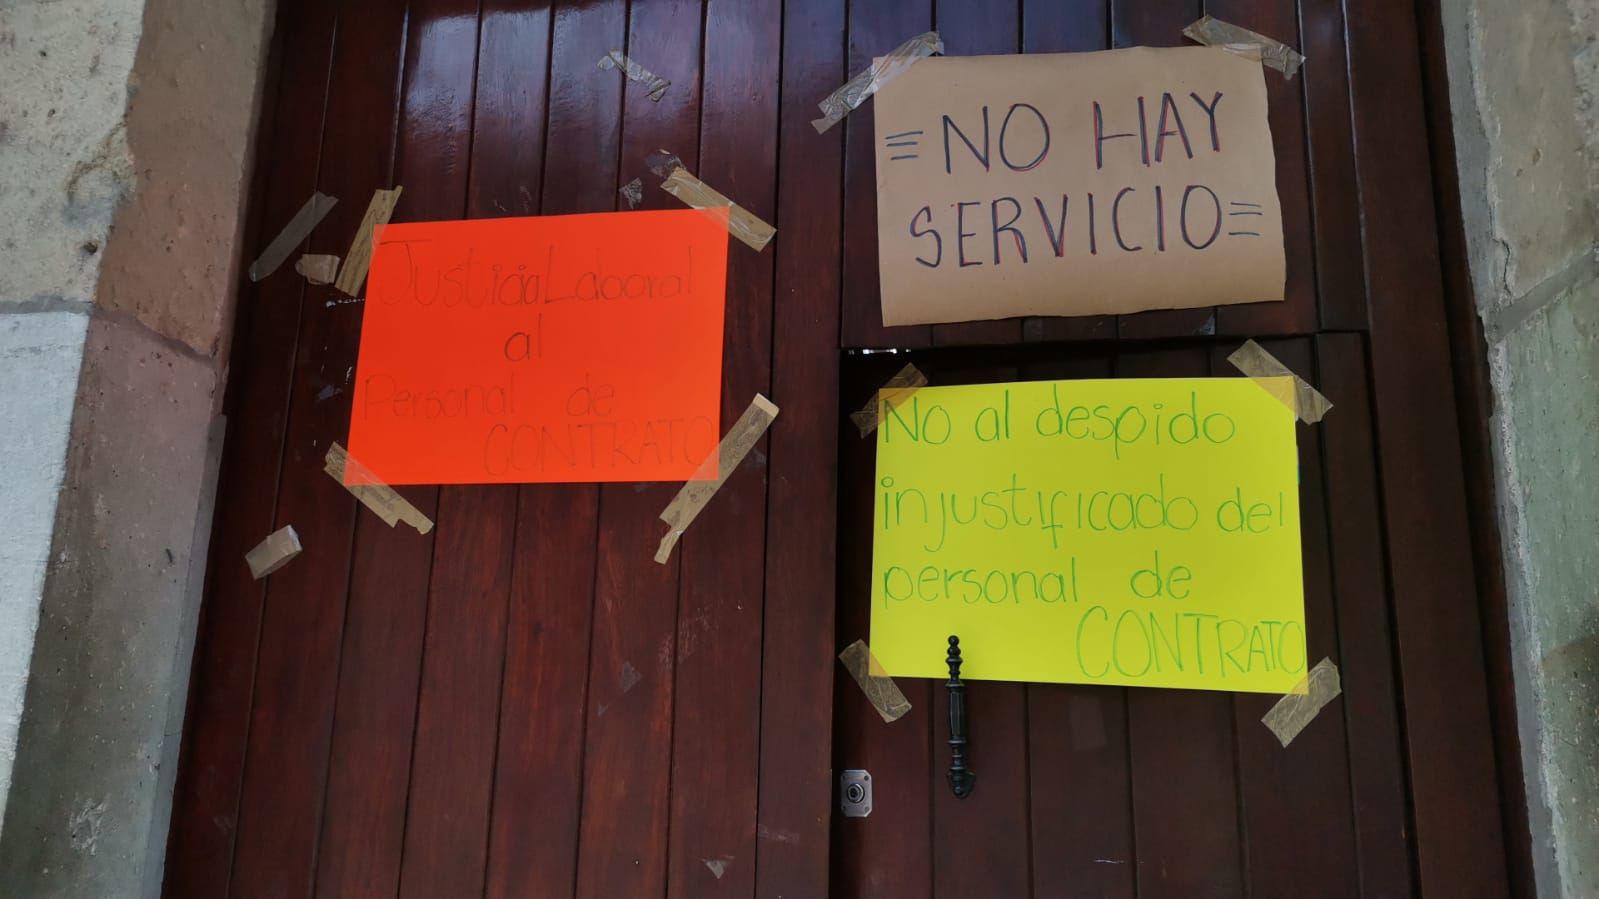 NO HAY
SERVICIO
Justicia Laboral
al
Personal de
CONTRATO
No al despido
injustificado del
personal de
CONTRATO